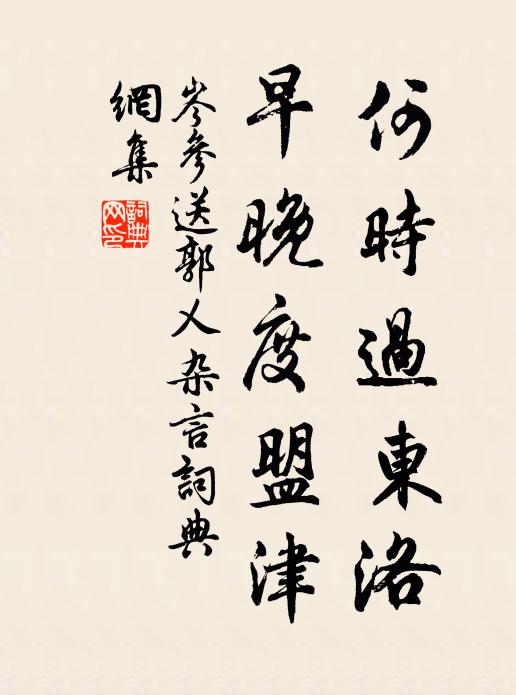 何時過東洛
早晚度盟津
岑參送郭乂杂言詞典
網集
詞典網印